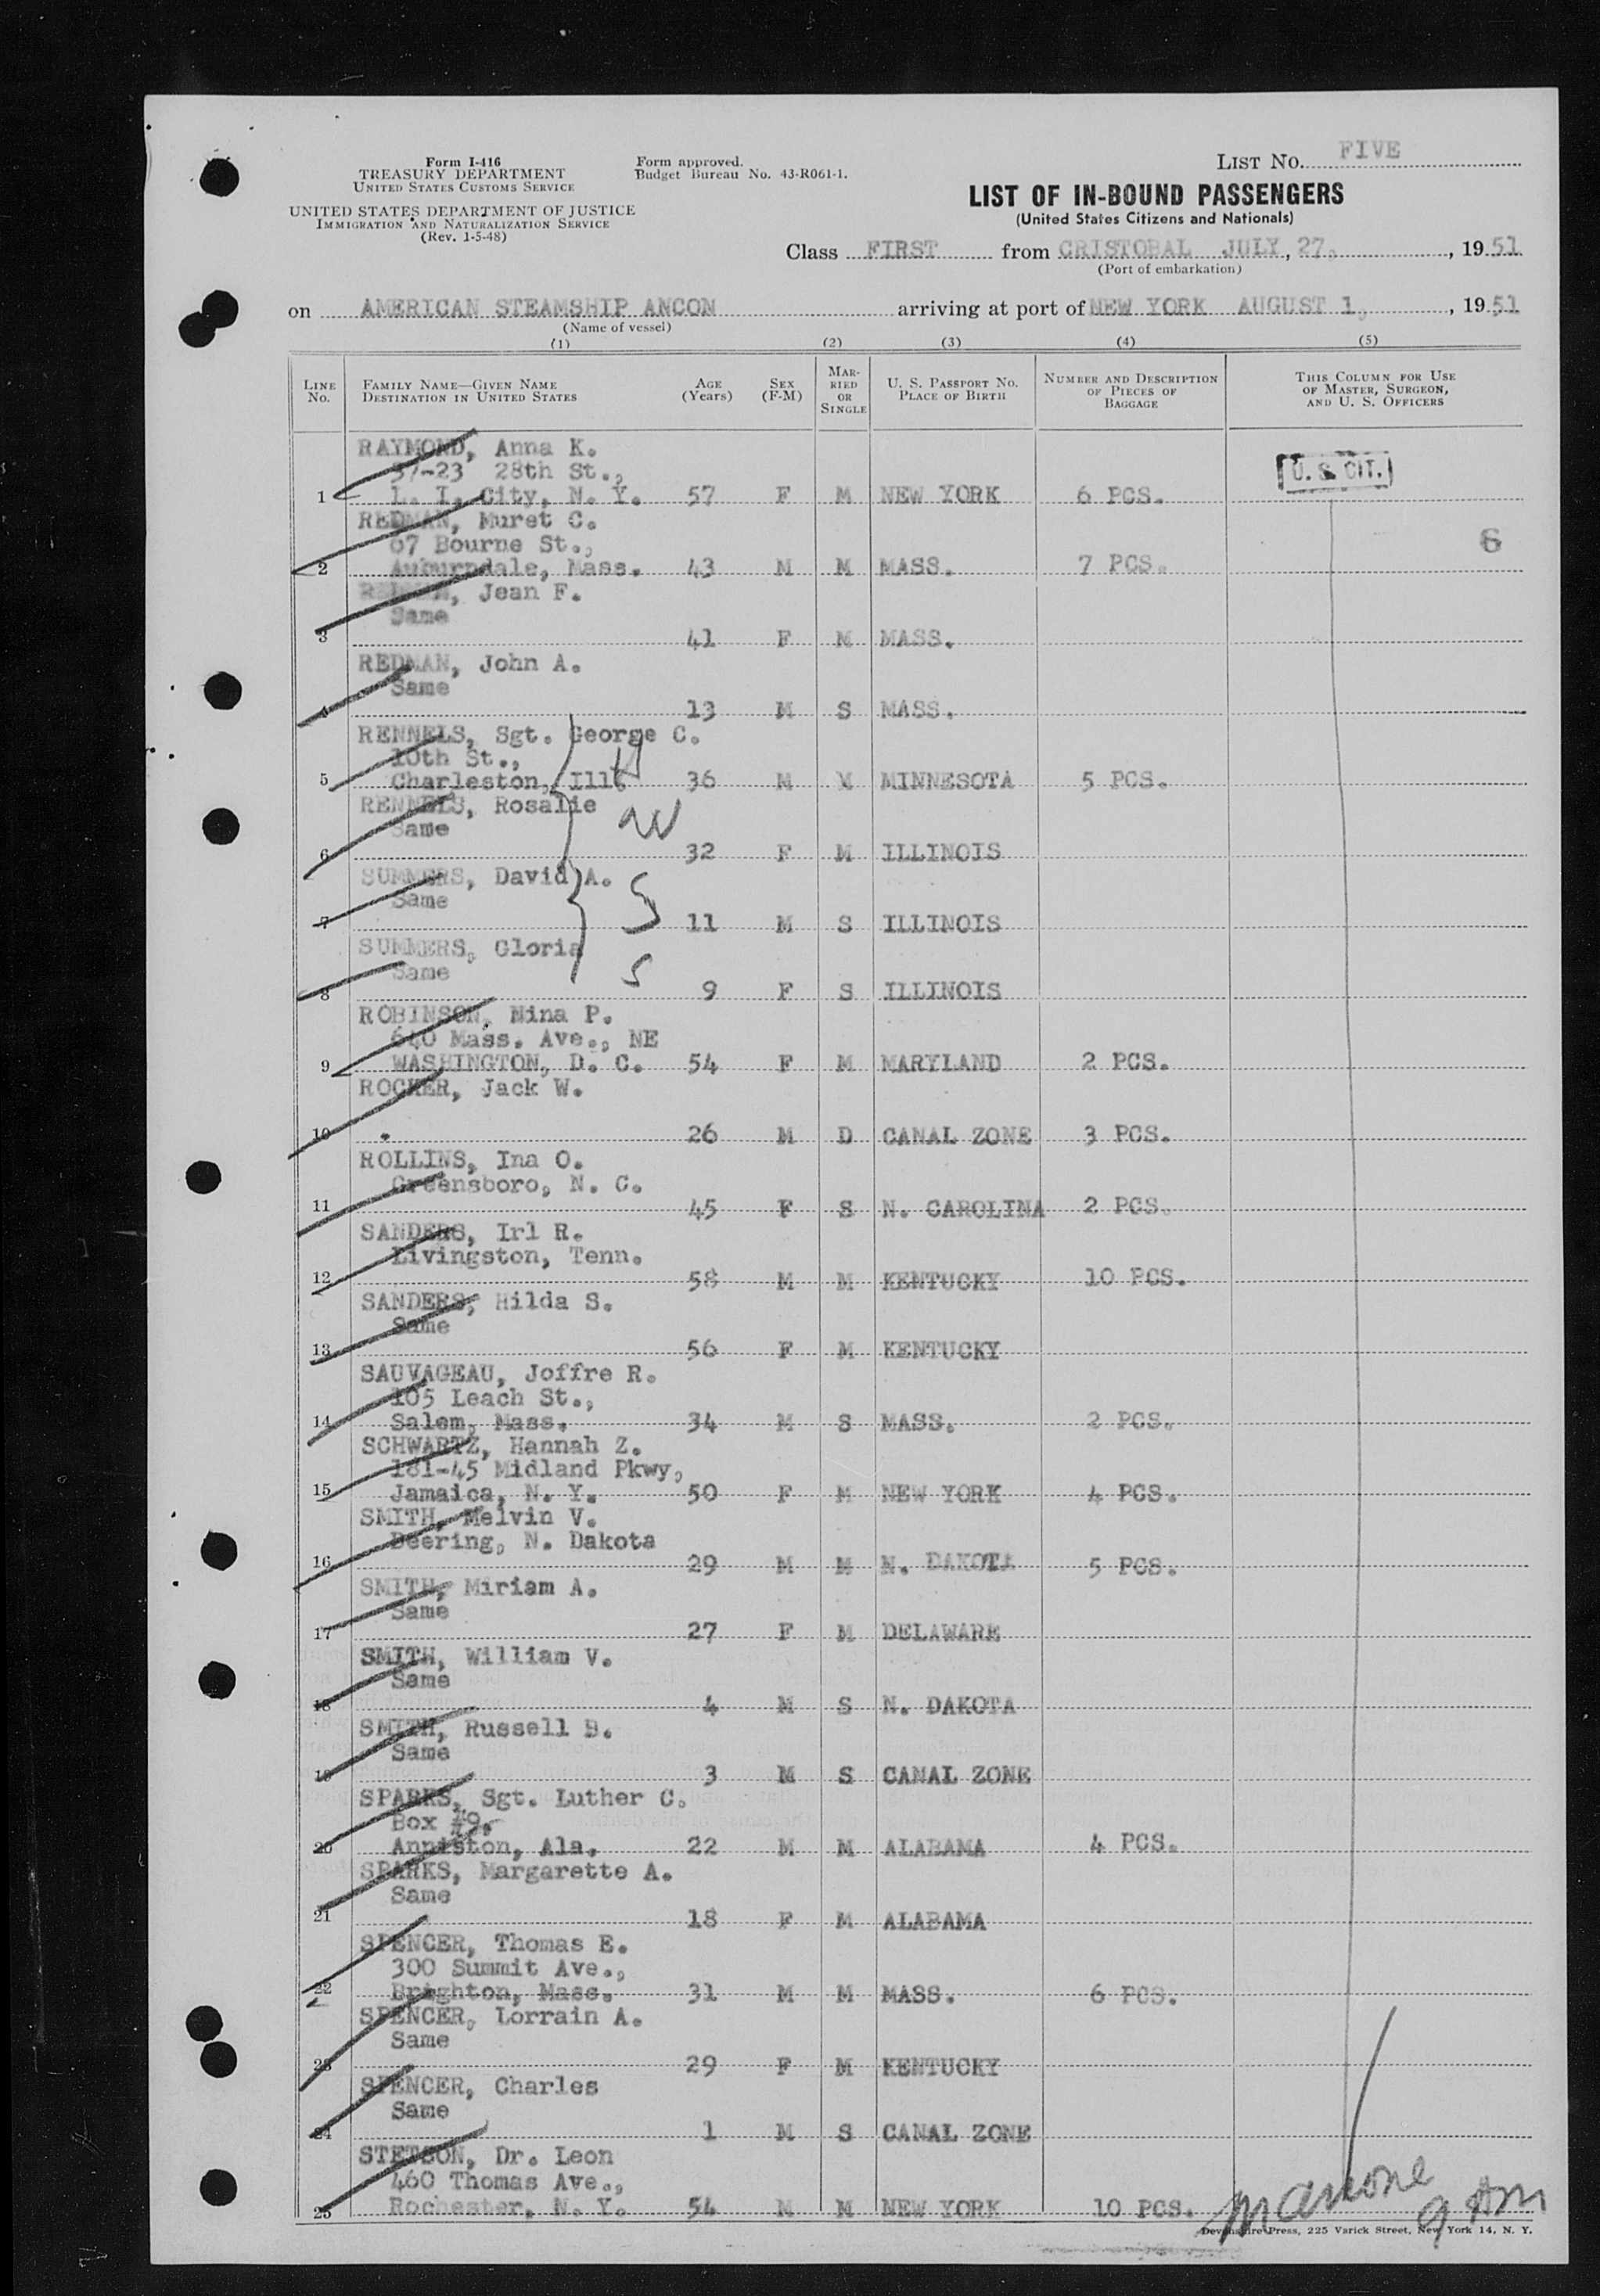 Form I-416
TREASURY DEPARTMENT
UNITED STATES CUSTOMS SERVICE
UNITED STATES DEPARTMENT OF JUSTICE
IMMIGRATION AND NATURALIZATION SERVICE
(Rev. 1-5-48)
Form approved.
Budget Bureau No. 43-R061-1.
LIST No. FIVE
LIST OF IN-BOUND PASSENGERS
(United States Citizens and Nationals)
Class FIRST from CRISTOBAL JULY, 27, , 1951
(Port of embarkation)
on AMERICAN STEAMSHIP ANCON arriving at port of NEW YORK AUGUST 1, , 1951
(Name of vessel)
(1) (2) (3) (4) (5)
LINE No. FAMILY NAME—GIVEN NAME DESTINATION IN UNITED STATES AGE (Years) SEX (F-M) MARRIED OR SINGLE U. S. PASSPORT No. PLACE OF BIRTH NUMBER AND DESCRIPTION OF PIECES OF BAGGAGE THIS COLUMN FOR USE OF MASTER, SURGEON, AND U. S. OFFICERS
RAYMOND, Anna K.
37-23 28th St.,
1 L. I. City, N. Y. 57 F M NEW YORK 6 PCS. U. S. CIT.
REDMAN, Muret C.
67 Bourne St., 6
2 Auburndale, Mass. 43 M M MASS. 7 PCS.
REDMAN, Jean F.
Same
3 41 F M MASS.
REDMAN, John A.
Same
4 13 M S MASS.
RENNELS, Sgt. George C.
10th St., H
5 Charleston, Ill. 36 M M MINNESOTA 5 PCS.
RENNELS, Rosalie
Same W
6 32 F M ILLINOIS
SUMMERS, David A.
Same S
7 11 M S ILLINOIS
SUMMERS, Gloria
Same S
8 9 F S ILLINOIS
ROBINSON, Nina P.
640 Mass. Ave., NE
9 WASHINGTON, D. C. 54 F M MARYLAND 2 PCS.
ROCKER, Jack W.
10 26 M D CANAL ZONE 3 PCS.
ROLLINS, Ina O.
Greensboro, N. C.
11 45 F S N. CAROLINA 2 PCS.
SANDERS, Irl R.
Livingston, Tenn.
12 58 M M KENTUCKY 10 PCS.
SANDERS, Hilda S.
Same
13 56 F M KENTUCKY
SAUVAGEAU, Joffre R.
105 Leach St.,
14 Salem, Mass. 34 M S MASS. 2 PCS.
SCHWARTZ, Hannah Z.
181-45 Midland Pkwy,
15 Jamaica, N. Y. 50 F M NEW YORK 4 PCS.
SMITH, Melvin V.
Deering, N. Dakota
16 29 M M N. DAKOTA 5 PCS.
SMITH, Miriam A.
Same
17 27 F M DELAWARE
SMITH, William V.
Same
18 4 M S N. DAKOTA
SMITH, Russell B.
Same
19 3 M S CANAL ZONE
SPARKS, Sgt. Luther C.
Box #9,
20 Anniston, Ala. 22 M M ALABAMA 4 PCS.
SPARKS, Margarette A.
Same
21 18 F M ALABAMA
SPENCER, Thomas E.
300 Summit Ave.,
22 Brighton, Mass. 31 M M MASS. 6 PCS.
SPENCER, Lorrain A.
Same
23 29 F M KENTUCKY
SPENCER, Charles
Same
24 1 M S CANAL ZONE
STETSON, Dr. Leon
460 Thomas Ave.,
25 Rochester, N. Y. 54 M M NEW YORK 10 PCS.
9 Am
Devonshire Press, 225 Varick Street, New York 14, N. Y.